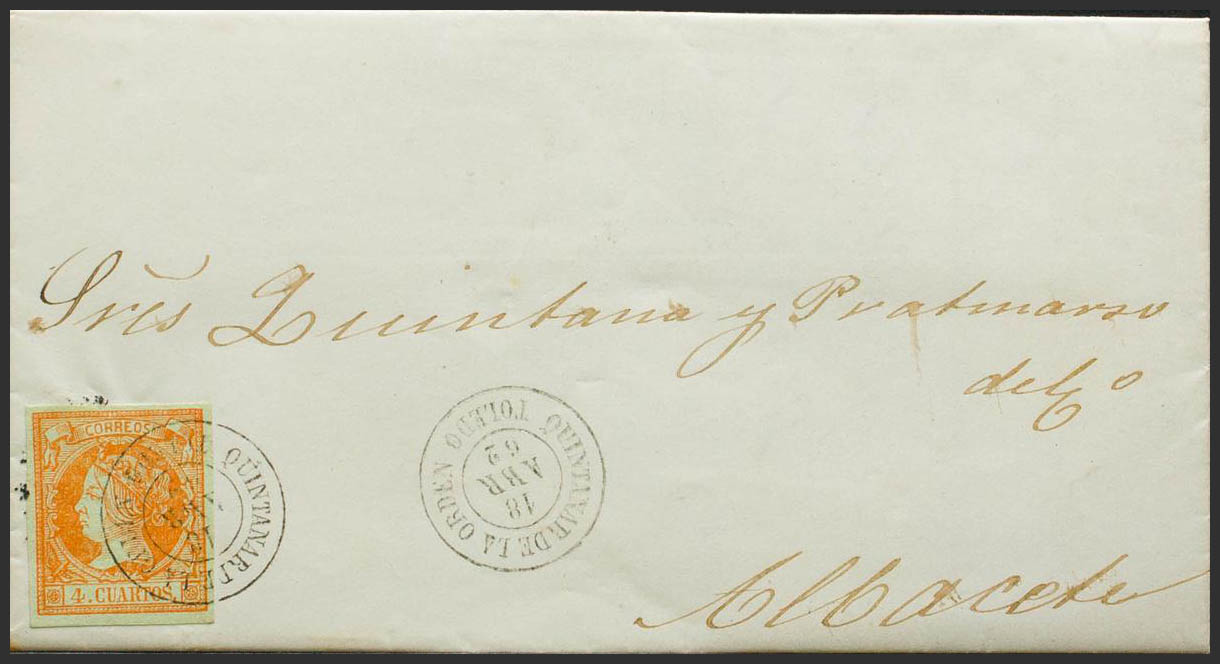 Sres Quintana y Pratmarso
de Co
CORREOS
4. CUARTOS.
QUINTANAR DE LA
QUINTANAR DE LA ORDEN
TOLEDO
18
ABR
62
Albacete